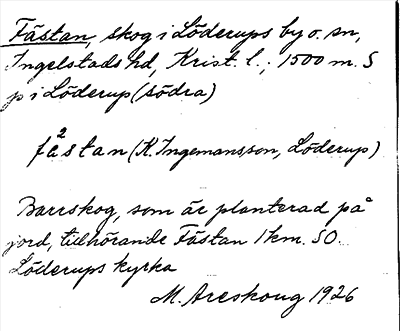 Fästan, skog i Löderups by o. sn,
Ingelstads hd, Krist. l.; 1500 m. S
p i Löderup (södra)
2
fåstan (K. Ingemansson, Löderup)
Barrskog, som är planterad på
jord, tillhörande Fästan 1 km. SO.
Löderups kyrka
M. Areskoug 1926